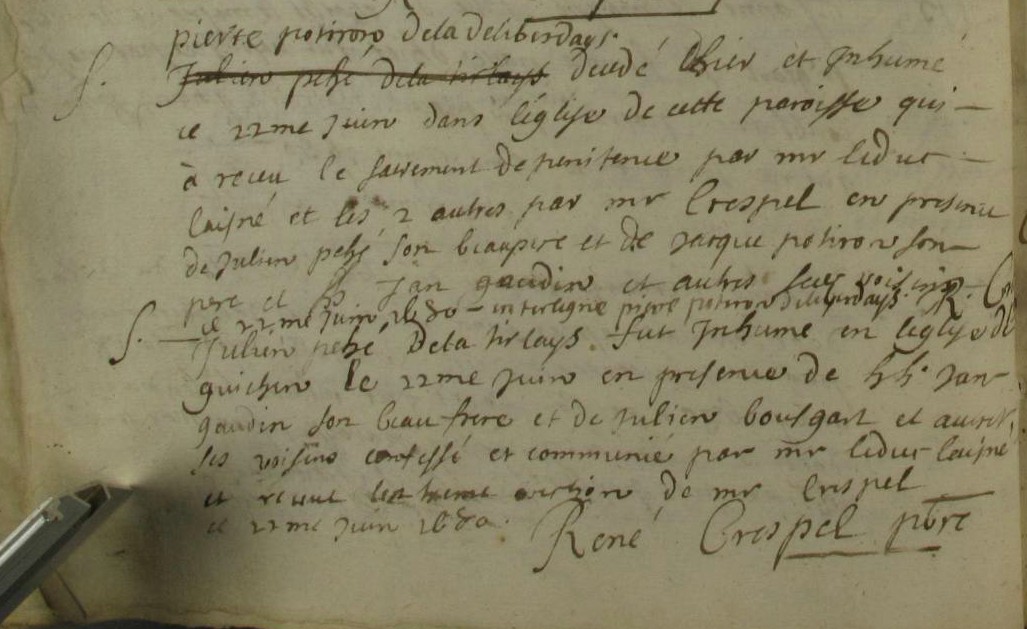 pierre potiron dela deliberdays.
S. Julien pehé dela tirlays decedé hier et Inhumé
ce 22me Juin dans léglise de cette paroisse qui
à receu le sacrement de penitence par mr leduc
laisné et les 2 autres par mr Crespel en presence
de Julien pehé son beaupere et de Jacque potiron son
pere et Jan gaudin et autres ses voisins R. C
ce 22me Juin 1680 - interligne pierre potiron deliberdays.
S. Julien pehé dela tirlays fut Inhumé en léglise de
guichen le 22me Juin en presence de hh. Jan
gaudin son beaufrere et de Julien bousgart et autres
ses voisins confessé et communié par mr leduc laisné
et receut lextreme onction de mr Crespel
ce 22me Juin 1680. René Crespel pbre